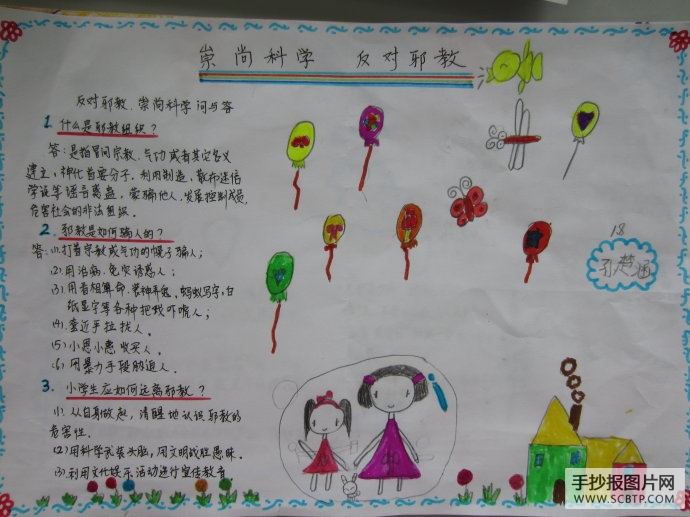 崇尚科学 反对邪教
反对邪教、崇尚科学问与答
1. 什么是邪教组织？
答：是指冒间宗教、气功或者其它名义
建立，神化首要分子，利用制造、散布迷信
学说等谣言蛊惑、蒙骗他人，发展控制成员，
危害社会的非法组织.
2. 邪教是如何骗人的？
答：(1).打着宗教或气功的幌子骗人；
(2).用治病、免灾诱惑人；
(3).用看相算命、装神弄鬼、蚂蚁写字，白
纸显字等各种把戏吓唬人；
(4).套近乎拉拢人.
(5).小恩小惠收买人.
(6).用暴力手段胁迫人.
3. 小学生应如何远离邪教？
(1).从自身做起，清醒地认识邪教的
危害性.
(2)用科学武装头脑，用文明战胜愚昧.
(3).利用文化娱乐活动进行宣传教育
18
孔楚涵
手抄报图片网
WWW.SCBTP.COM